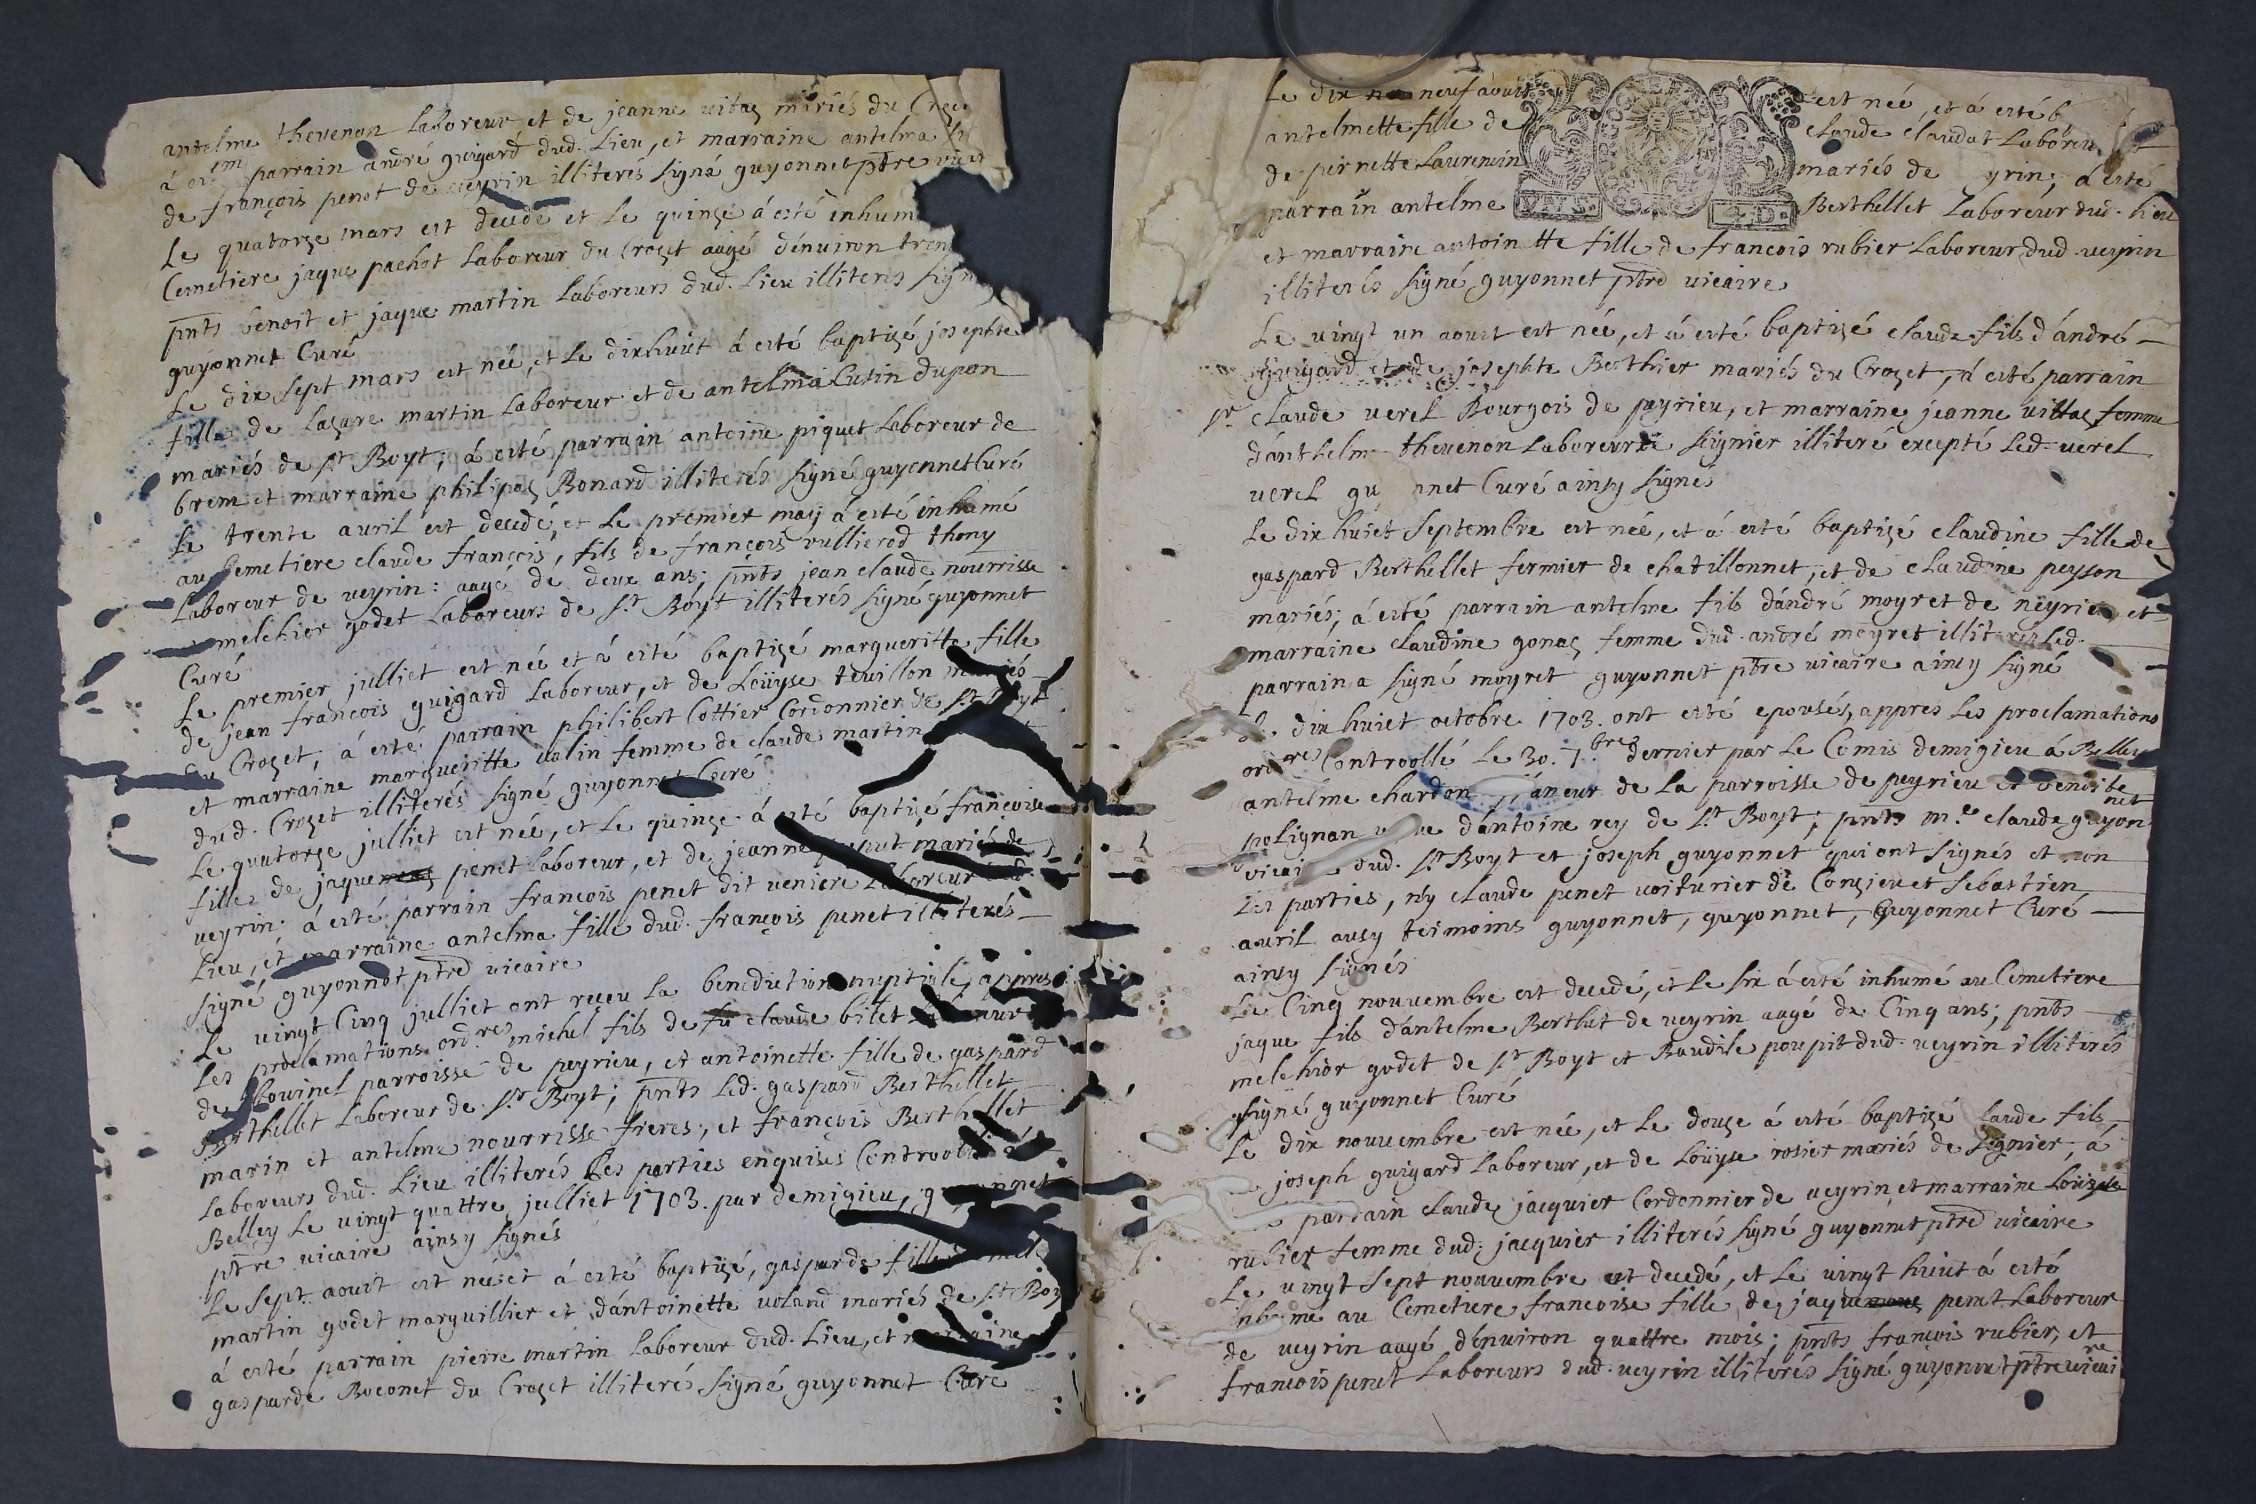 antelme thevenon Laboreur et de jeanne vitaz mariés du Croz
á esté parrain andré guigard dud. Lieu, et marraine antelma
de françois penet de veyrin illiterés signé guyonnet ptre vicai
Le quatorze mars est decedé et Le quinze á esté inhum
Cemetiere jaque pachot Laboreur du Crozet aagé d'enuiron tren
pnts benoit et jaque martin Laboreurs dud. Lieu illiterés sign
guyonnet Curé
Le dix sept mars est née, et Le dixhuict á esté baptizé josephte
fille de Lazare martin Laboreur et de antelma Cusin dupon
mariés de St Boyt; á esté parrain antoine piquet Laboreur de
brem et marraine philipaz Bonard illiterés signé guyonnet Curé
Le trente auril est decedé, et Le premier may á esté inhumé
au Cemetiere claude françois, fils de françois vullierod thony
Laboreur de veyrin: aagé de deux ans; pnts jean claude nourrisse
melchior godet Laboreurs de St Boyt illiterés signé guyonnet
Curé
Le premier julliet est née et á esté baptizé margueritte fille
de jean françois guigard Laboreur, et de Loüyse teuillon mariés
du Crozet, á esté parrain philibert Cottier Cordonnier de St Boyt
et marraine margueritte valin femme de claude martin
dud. Crozet illiterés signé guyonnet Curé
Le quatorze julliet est née, et Le quinze á esté baptizé françoise
fille de jaquemaz penet Laboreur, et de jeanne mariés de
veyrin: á esté parrain françois penet dit veniere Laboreur dud.
Lieu, et marraine antelma fille dud. françois penet illiterés
signé guyonnet ptre vicaire
Le vingt Cinq julliet ont reçeu La benediction nuptiale appres
Les proclamations ordres michel fils de fu claude bilet Laboureur
de bouinel parroisse de peyrieu, et antoinette fille de gaspard
Berthellet Laboreur de St Boyt; pnts Led. gaspard Berthellet
marin et antelme nourrisse freres, et françois Berthellet
Laboreurs dud. Lieu illiterés Les parties enquises Controollé á
Belley Le vingt quattre julliet 1703. par demigieu, guyonnet
ptre vicaire ainsy signés
Le sept aoust est née et á esté baptizé, gasparde fille de
martin godet marguillier et d'antoinette voland mariés de St Boyt
á esté parrain pierre martin Laboreur dud. Lieu, et marraine
gasparde Boconet du Crozet illiterés signé guyonnet Curé
Le dix neuf aoust est née, et á esté b
antelmette fille de claude claudat Laboreur
de pernette Laurencin mariés de yrin; á esté
parrain antelme Berthellet Laboreur dud. Lieu
VN S. 4.D.
et marraine antoinette fille de françois rubier Laboreur dud. veyrin
illiterés signé guyonnet ptre vicaire
Le vingt un aoust est née, et á esté baptizé claude fils d'andré
guigard et de josephte Berthier mariés du Crozet, á esté parrain
sr. claude verel Bourgois de peyrieu, et marraine jeanne vittaz femme
d'anthelme thevenon Laboreur de signier illiteré excepté Led. verel
verel gu nnet Curé ainsy signés
Le dix huict septembre est née, et á esté baptizé claudine fille de
gaspard Berthellet fermier de chatillonnet, et de claudine peysson
mariés; á esté parrain antelme fils d'andré moyret de neyrieu et
marraine claudine gonaz femme dud. andré moyret illiterés Led.
parrain a signé moyret guyonnet ptre vicaire ainsy signé
dix huict octobre 1703. ont esté epousés, appres Les proclamations
ordres Controollé Le 30. 7bre dernier par Le Comis demigieu á Belley
antelme chardon de La parroisse de peyrieu et benoite
polignan d'antoine rey de St Boyt; pnts mre claude guyonnet
vicai dud. St Boyt et joseph guyonnet qui ont signés et non
Les parties, n'y claude penet voiturier de Conzieu et sebastien
auril ausy tesmoins guyonnet, guyonnet, guyonnet Curé
ainsy signés
Le Cinq nouuembre est decedé, et Le six á esté inhumé au Cemetiere
jaque fils d'antelme Berthet de veyrin aagé de Cinq ans; pnts
melchior godet de St Boyt et Baudile poupit dud. veyrin illiterés
signé guyonnet Curé
Le dix nouuembre est née, et Le douze á esté baptizé laude fils
joseph guigard Laboreur, et de Loüyse rosier mariés de signier, á
parrain claude jacquier Cordonnier de veyrin et marraine Loüyse
rubier femme dud. jacquier illiterés signé guyonnet ptre vicaire
Le vingt sept nouuembre est decedé, et Le vingt huict á esté
inhumé au Cemetiere francoise fille de jaquemaz penet Laboreur
de veyrin aagé d'enuiron quattre mois; pnts françois rubier, et
francois penet Laboreurs dud. veyrin illiterés signé guyonnet ptre vicaire